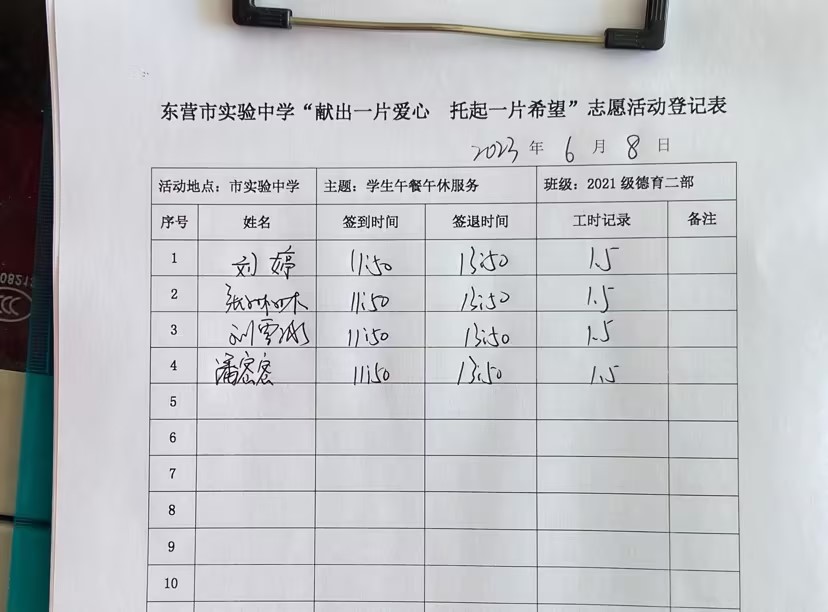 东营市实验中学“献出一片爱心 托起一片希望”志愿活动登记表
2023 年 6 月 8 日
活动地点：市实验中学 主题：学生午餐午休服务 班级：2021级德育二部
序号 姓名 签到时间 签退时间 工时记录 备注
1 刘婷 11:50 13:50 1.5
2 11:50 13:50 1.5
3 11:50 13:50 1.5
4 潘密密 11:50 13:50 1.5
5
6
7
8
9
10